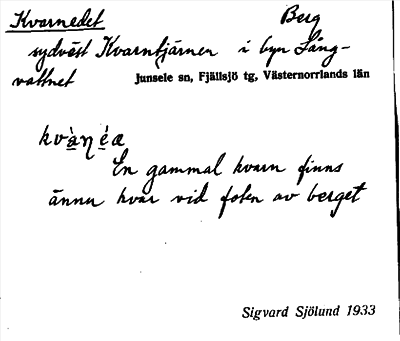 Kvarnedet Berg
sydväst Kvarntjärnen i byn Lång-
vattnet Junsele sn, Fjällsjö tg, Västernorrlands län
kvàŋéa
En gammal kvarn finns
ännu kvar vid foten av berget
Sigvard Sjölund 1933